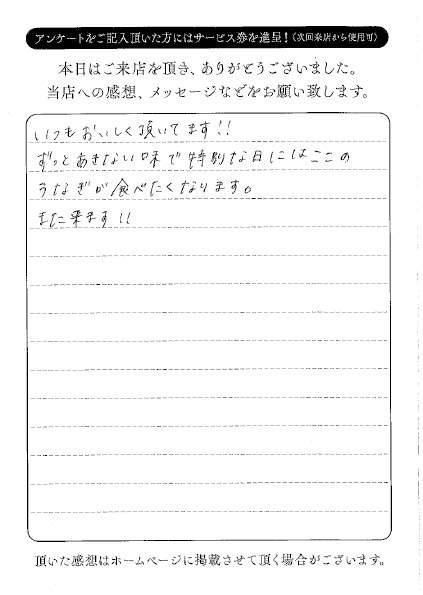 アンケートをご記入頂いた方にはサービス券を進呈！（次回来店から使用可）
本日はご来店を頂き、ありがとうございました。
当店への感想、メッセージなどをお願い致します。
いつもおいしく頂いてます!!
ずっとあきない味で特別な日にはここの
うなぎが食べたくなります。
また来ます!!
頂いた感想はホームページに掲載させて頂く場合がございます。